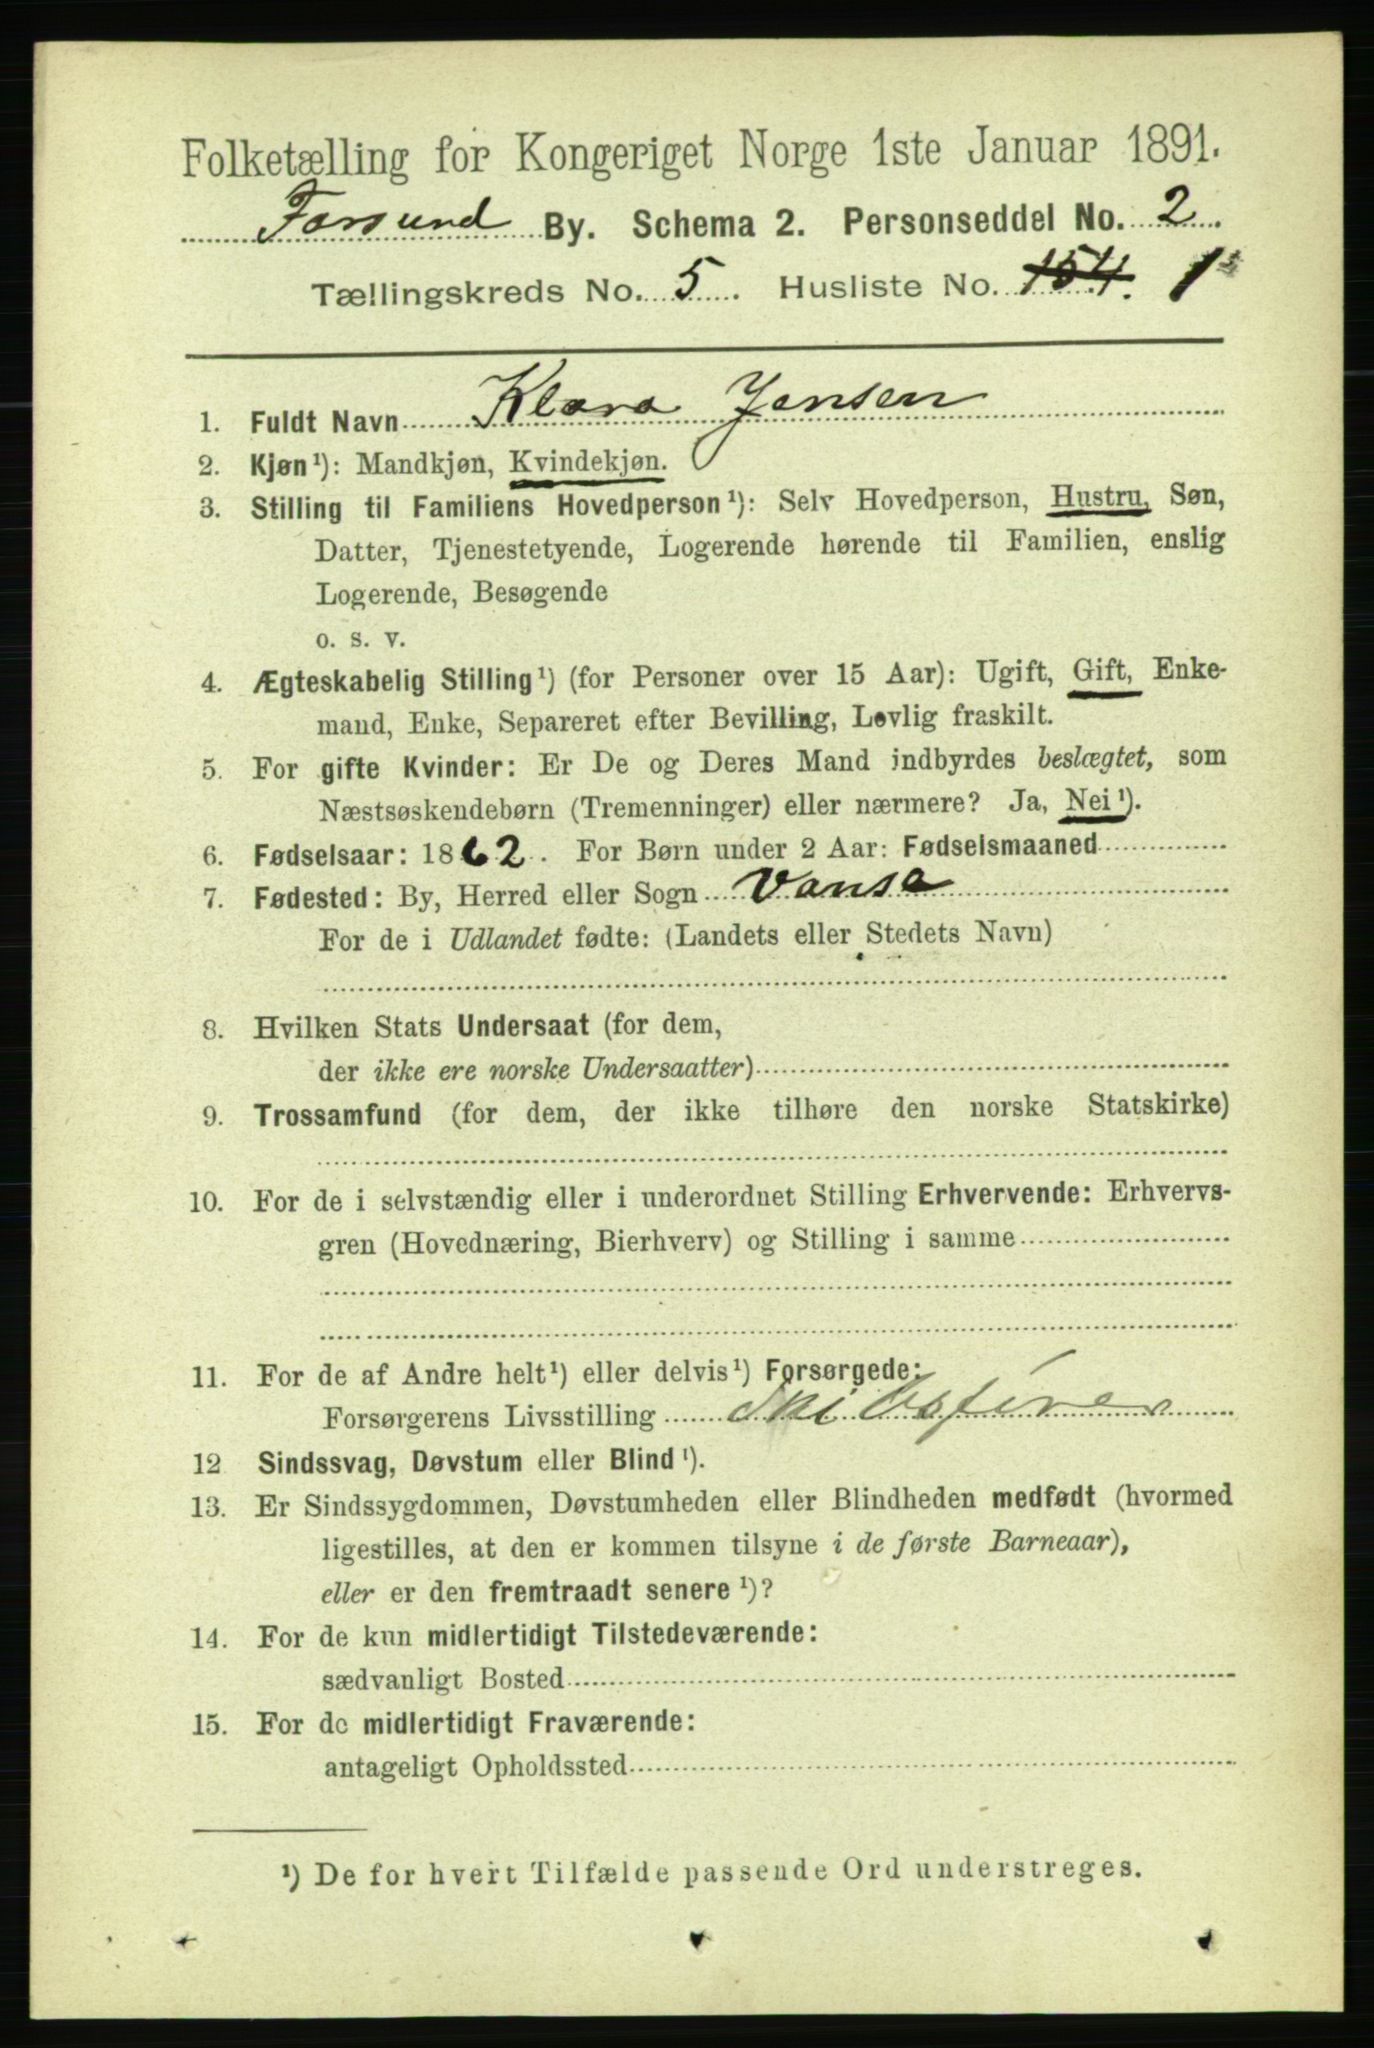 Folketælling for Kongeriget Norge 1ste Januar 1891.
Farsund By. Schema 2. Personseddel No. 2.
Tællingskreds No. 5. Husliste No. 154. 1
1. Fuldt Navn Klara Jensen
2. Kjøn¹): Mandkjøn, Kvindekjøn.
3. Stilling til Familiens Hovedperson¹): Selv Hovedperson, Hustru, Søn,
Datter, Tjenestetyende, Logerende hørende til Familien, enslig
Logerende, Besøgende
o. s. v.
4. Ægteskabelig Stilling¹) (for Personer over 15 Aar): Ugift, Gift, Enke-
mand, Enke, Separeret efter Bevilling, Lovlig fraskilt.
5. For gifte Kvinder: Er De og Deres Mand indbyrdes beslægtet, som
Næstsøskendebørn (Tremenninger) eller nærmere? Ja, Nei¹).
6. Fødselsaar: 1862. For Børn under 2 Aar: Fødselsmaaned
7. Fødested: By, Herred eller Sogn Vanse
For de i Udlandet fødte: (Landets eller Stedets Navn)
8. Hvilken Stats Undersaat (for dem,
der ikke ere norske Undersaatter)
9. Trossamfund (for dem, der ikke tilhøre den norske Statskirke)
10. For de i selvstændig eller i underordnet Stilling Erhvervende: Erhvervs-
gren (Hovednæring, Bierhverv) og Stilling i samme
11. For de af Andre helt¹) eller delvis¹) Forsørgede:
Forsørgerens Livsstilling Skibsfører
12 Sindssvag, Døvstum eller Blind¹).
13. Er Sindssygdommen, Døvstumheden eller Blindheden medfødt (hvormed
ligestilles, at den er kommen tilsyne i de første Barneaar),
eller er den fremtraadt senere¹)?
14. For de kun midlertidigt Tilstedeværende:
sædvanligt Bosted
15. For de midlertidigt Fraværende:
antageligt Opholdssted
¹) De for hvert Tilfælde passende Ord understreges.